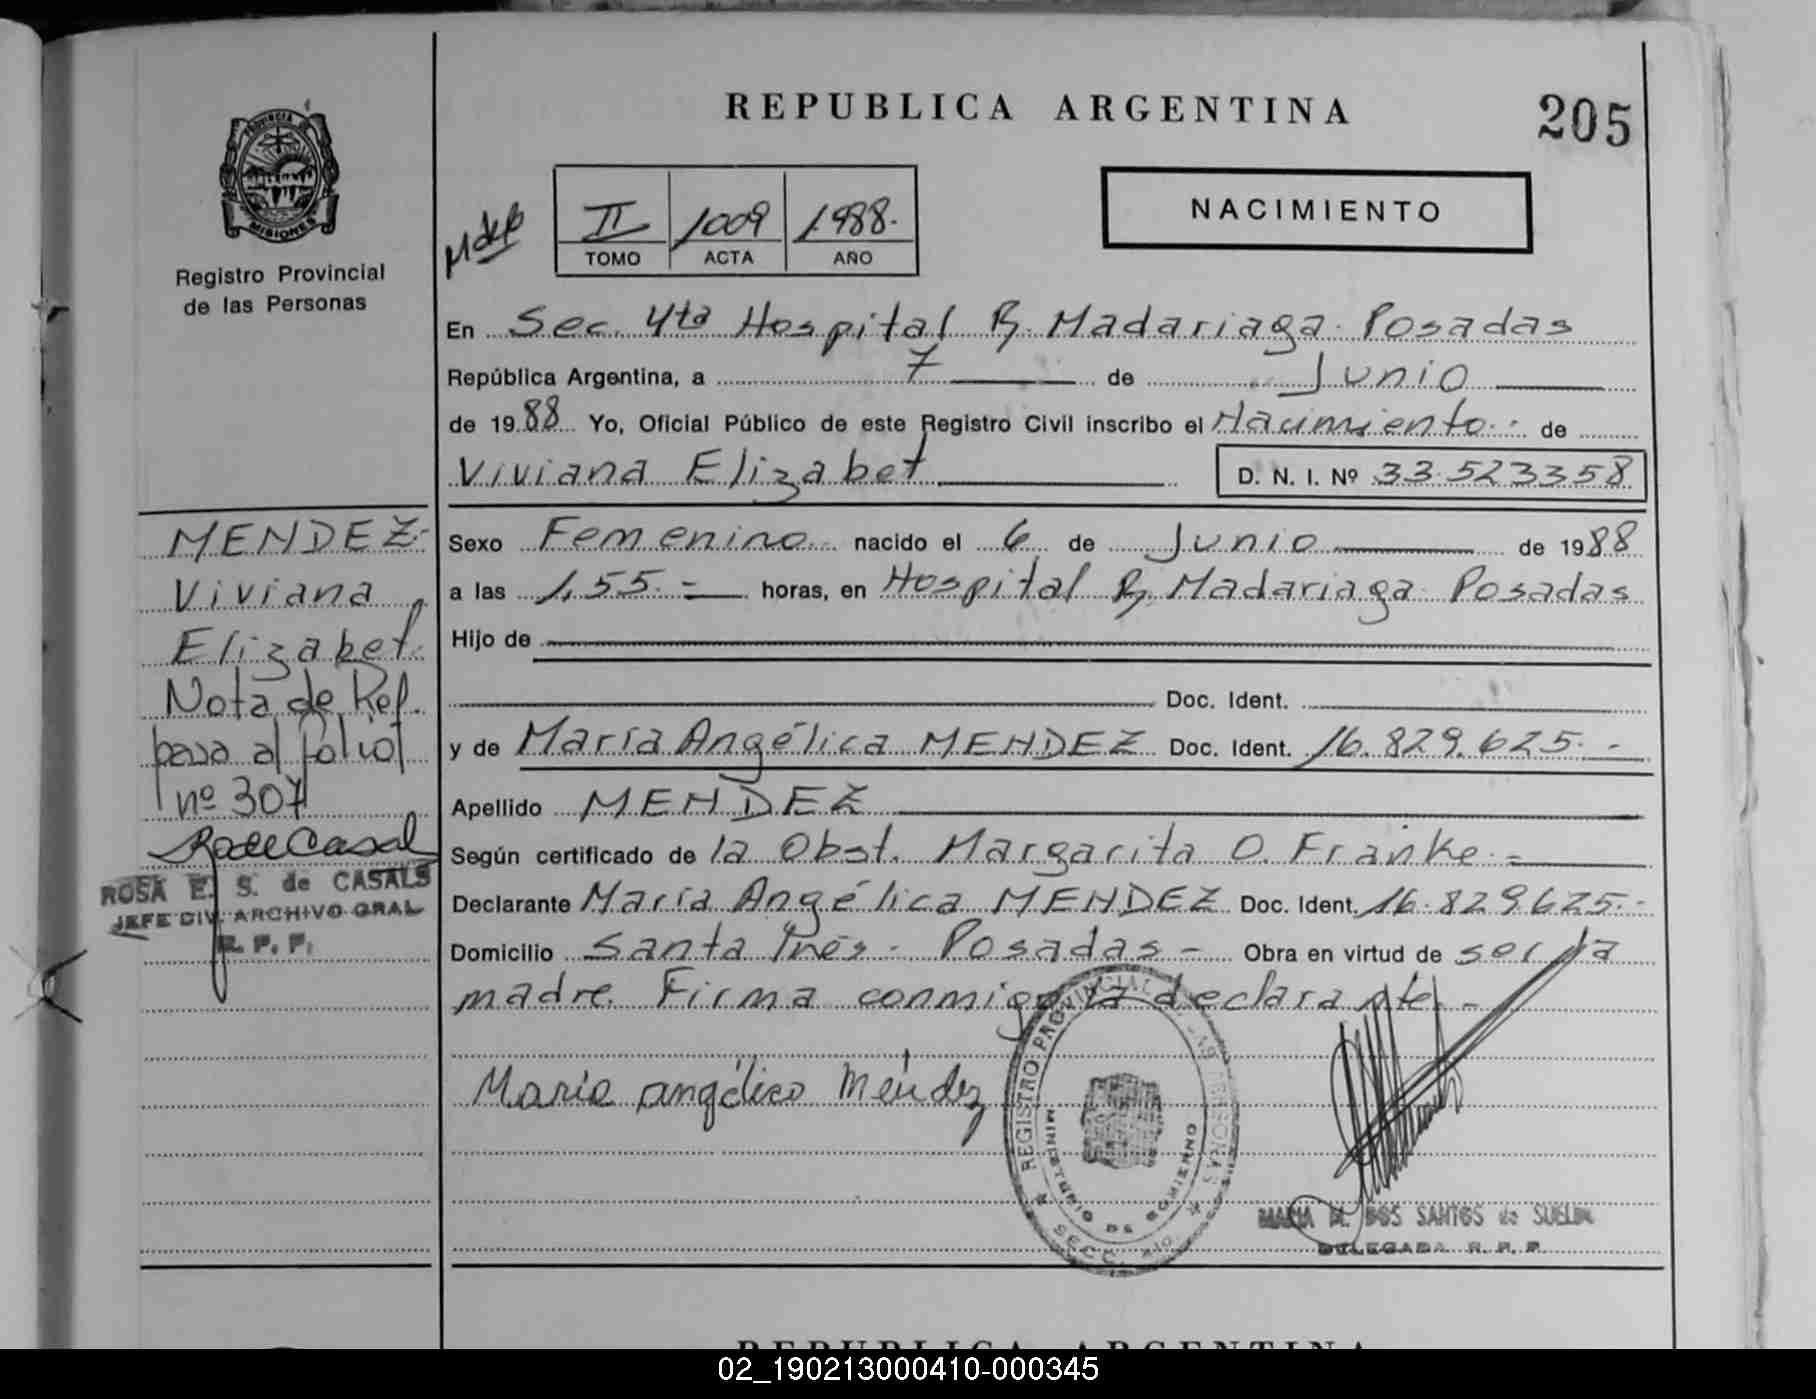 REPUBLICA ARGENTINA
205
PROVINCIA DE
MISIONES
Registro Provincial
de las Personas
II 1009 1988.
TOMO ACTA AÑO
NACIMIENTO
En Sec. 4ta Hospital R. Madariaga. Posadas
República Argentina, a 7 de Junio
de 1988 Yo, Oficial Público de este Registro Civil inscribo el Nacimiento de
Viviana Elizabet D. N. I. Nº 33.523358
MENDEZ
Viviana
Elizabet.
Nota de Ref.
pasa al folio
nº 307
ROSA E. S. de CASALS
JEFE DIV. ARCHIVO GRAL
R. P. P.
Sexo Femenino nacido el 6 de Junio de 1988
a las 1,55.- horas, en Hospital R. Madariaga Posadas
Hijo de
Doc. Ident.
y de María Angélica MENDEZ Doc. Ident. 16.829.625.-
Apellido MENDEZ
Según certificado de la Obst. Margarita O. Franke.-
Declarante María Angélica MENDEZ Doc. Ident. 16.829625.-
Domicilio Santa Inés - Posadas - Obra en virtud de ser la
madre. Firma conmigo la declarante.-
María angélica Méndez
REGISTRO PROVINCIAL DE LAS PERSONAS
MINISTERIO DE GOBIERNO
SECC. 4ta
MARIA DOS SANTOS de
DELEGADA R. P. P.
REPUBLICA ARGENTINA
02_190213000410-000345